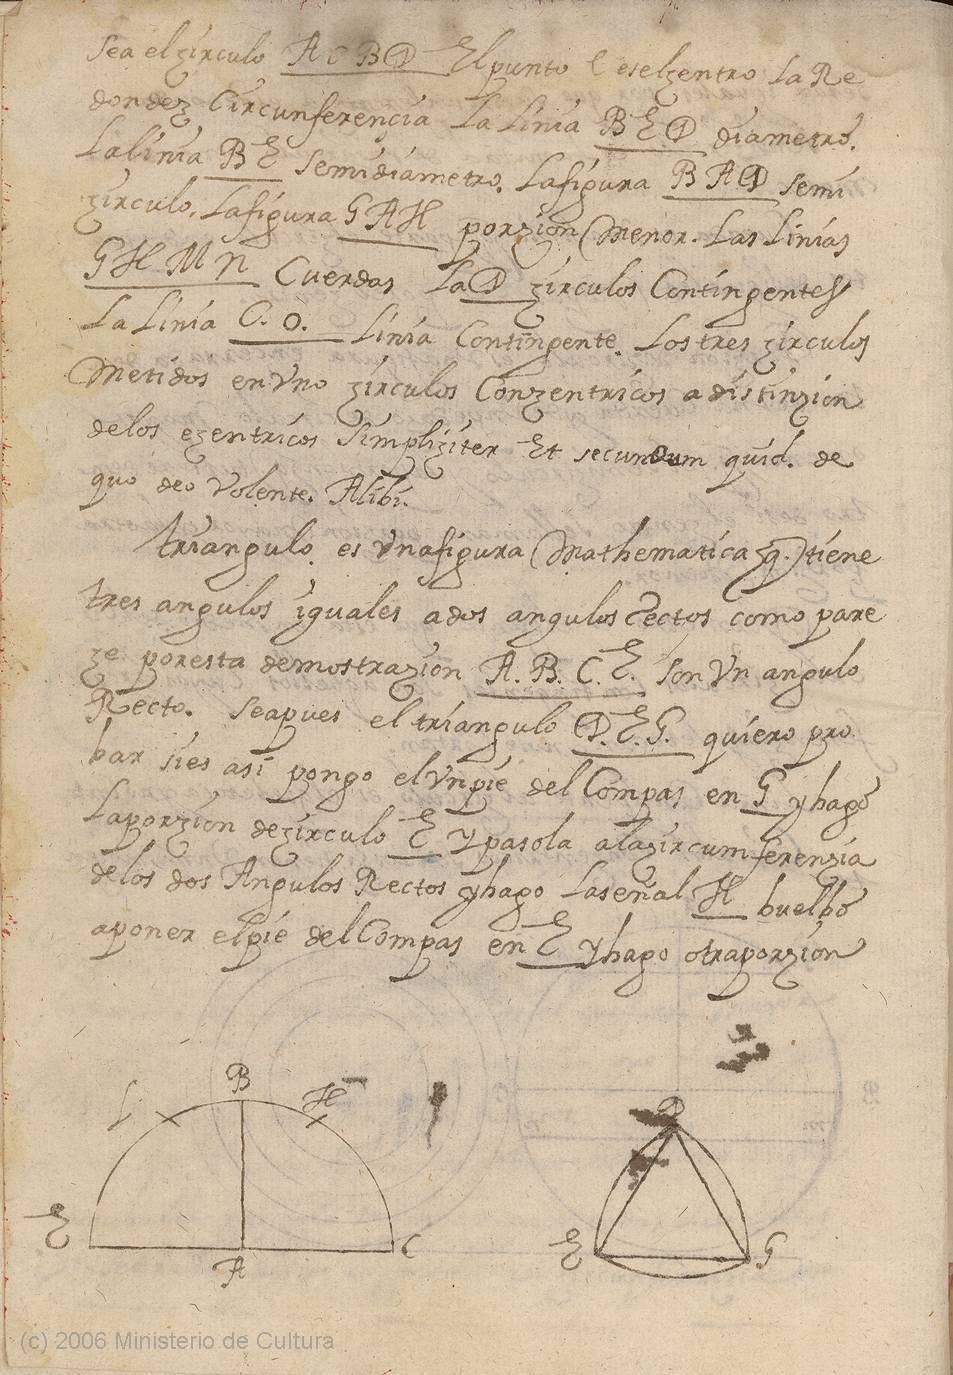 sea el zirculo A C B D El punto E es el zentro La Re
dondez Circunferençia La Linia B E D diametro.
La linia B E semidiametro. La figura B A D semi
zirculo. La figura G A H porzion Menor. Las Linias
G H M N Cuerdas La D zirculos Contingentes
La Linia C. O. linia Contingente. Los tres zirculos
Metidos en Vno zirculos Conzentricos a distinzion
de los ezentricos Simpliziter Et secundum quid. de
quo deo Volente. Alibi.
triangulo es Vna figura Mathematica q. tiene
tres angulos iguales a dos angulos rectos como pare
ze por esta demostrazion A. B. C. E. son Vn angulo
Recto. Sea pues el triangulo D. E. G. quiero pro
bar si es asi pongo el Vn pie del Compas en G y hago
La porzion de zirculo E y pasola a la zircumferenzia
de los dos Angulos Rectos y hago La señal H buelbo
a poner el pie del Compas en E y hago otra porzion
B
L H
E A C
D
E G
(c) 2006 Ministerio de Cultura